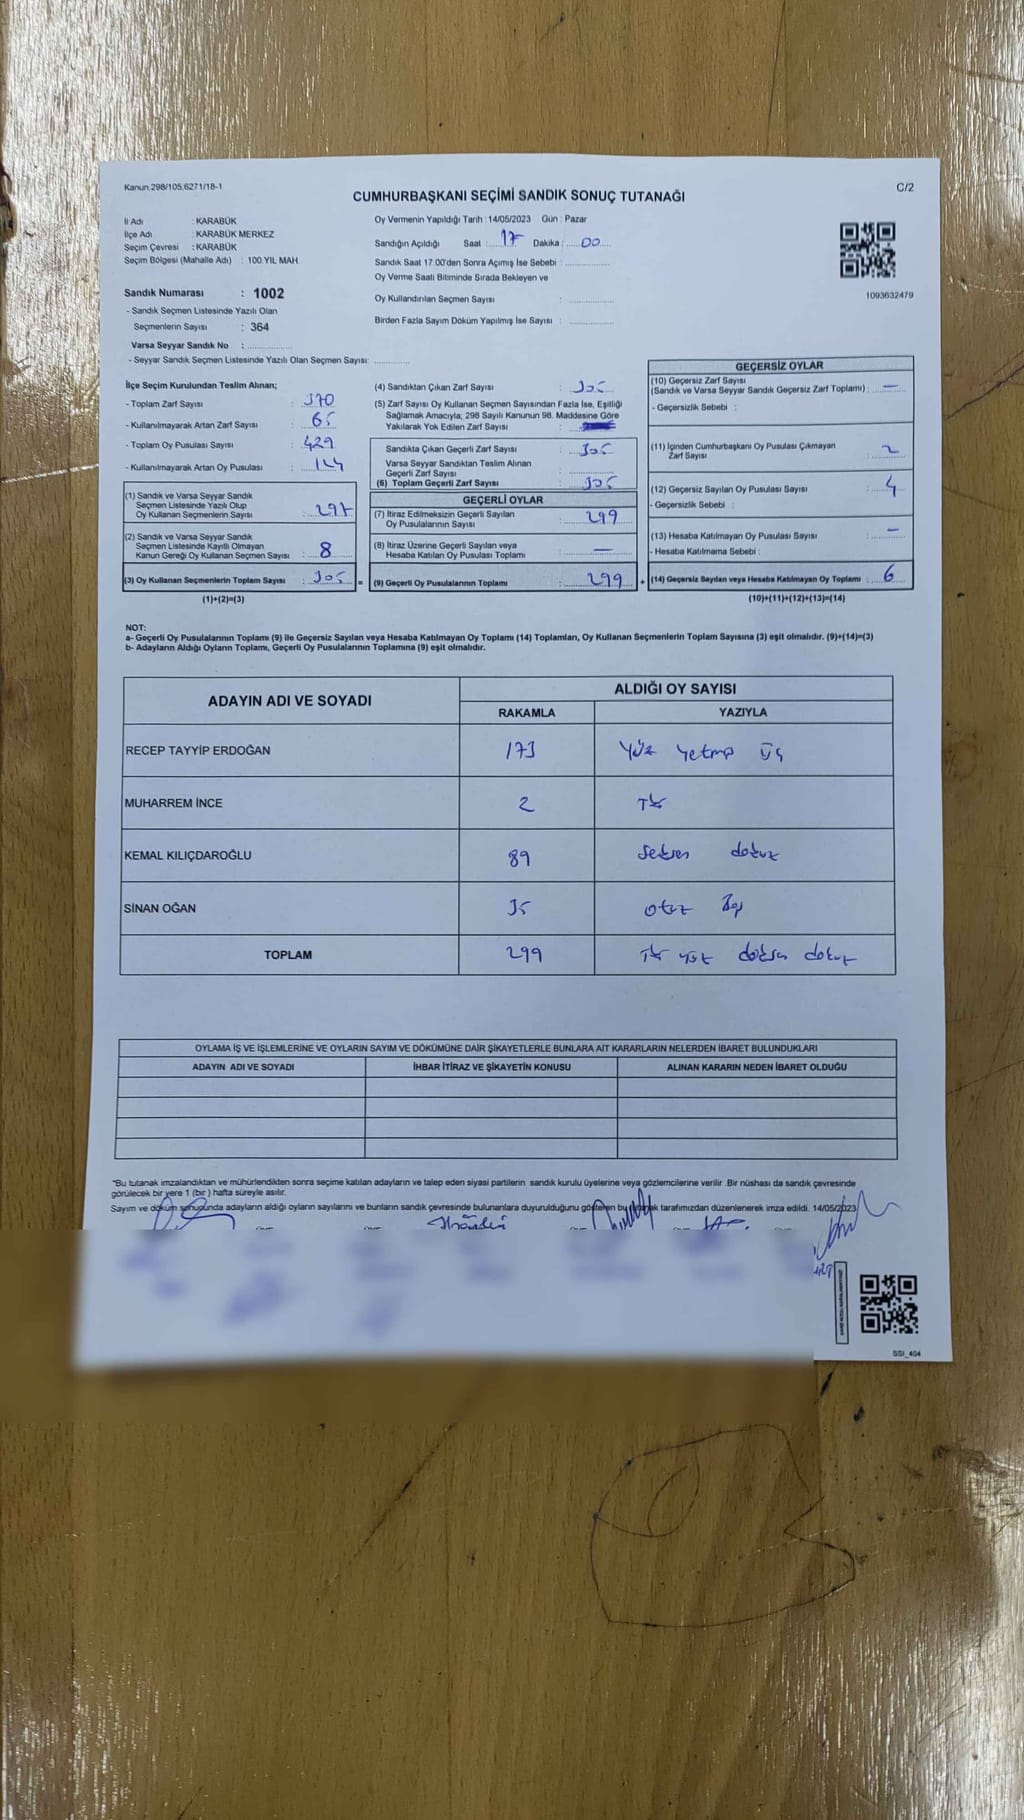 Kanun.298/105,6271/18-1
C/2
CUMHURBAŞKANI SEÇİMİ SANDIK SONUÇ TUTANAĞI
İl Adı : KARABÜK
İlçe Adı : KARABÜK MERKEZ
Seçim Çevresi : KARABÜK
Seçim Bölgesi (Mahalle Adı) : 100.YIL MAH.
Sandık Numarası : 1002
- Sandık Seçmen Listesinde Yazılı Olan
Seçmenlerin Sayısı : 364
Varsa Seyyar Sandık No :
- Seyyar Sandık Seçmen Listesinde Yazılı Olan Seçmen Sayısı:
Oy Vermenin Yapıldığı Tarih : 14/05/2023 Gün : Pazar
Sandığın Açıldığı Saat : 17 Dakika : 00
Sandık Saat 17:00'den Sonra Açımış İse Sebebi :
Oy Verme Saati Bitiminde Sırada Bekleyen ve
Oy Kullandırılan Seçmen Sayısı :
Birden Fazla Sayım Döküm Yapılmış İse Sayısı :
1093632479
İlçe Seçim Kurulundan Teslim Alınan;
- Toplam Zarf Sayısı : 370
- Kullanılmayarak Artan Zarf Sayısı : 65
- Toplam Oy Pusulası Sayısı : 429
- Kullanılmayarak Artan Oy Pusulası : 124
(1) Sandık ve Varsa Seyyar Sandık
Seçmen Listesinde Yazılı Olup
Oy Kullanan Seçmenlerin Sayısı : 297
(2) Sandık ve Varsa Seyyar Sandık
Seçmen Listesinde Kayıtlı Olmayan
Kanun Gereği Oy Kullanan Seçmen Sayısı : 8
(3) Oy Kullanan Seçmenlerin Toplam Sayısı : 305 =
(1)+(2)=(3)
(4) Sandıktan Çıkan Zarf Sayısı : 305
(5) Zarf Sayısı Oy Kullanan Seçmen Sayısından Fazla İse, Eşitliği
Sağlamak Amacıyla; 298 Sayılı Kanunun 98. Maddesine Göre
Yakılarak Yok Edilen Zarf Sayısı :
Sandıkta Çıkan Geçerli Zarf Sayısı : 305
Varsa Seyyar Sandıktan Teslim Alınan
Geçerli Zarf Sayısı :
(6) Toplam Geçerli Zarf Sayısı : 305
GEÇERLİ OYLAR
(7) İtiraz Edilmeksizin Geçerli Sayılan
Oy Pusulalarının Sayısı : 299
(8) İtiraz Üzerine Geçerli Sayılan veya
Hesaba Katılan Oy Pusulası Sayısı : —
(9) Geçerli Oy Pusulalarının Toplamı : 299 +
GEÇERSİZ OYLAR
(10) Geçersiz Zarf Sayısı
(Sandık ve Varsa Seyyar Sandık Geçersiz Zarf Toplamı) : —
- Geçersizlik Sebebi :
(11) İçinden Cumhurbaşkanı Oy Pusulası Çıkmayan
Zarf Sayısı : 2
(12) Geçersiz Sayılan Oy Pusulası Sayısı : 4
- Geçersizlik Sebebi :
(13) Hesaba Katılmayan Oy Pusulası Sayısı : —
- Hesaba Katılmama Sebebi :
(14) Geçersiz Sayılan veya Hesaba Katılmayan Oy Toplamı : 6
(10)+(11)+(12)+(13)=(14)
NOT:
a- Geçerli Oy Pusulalarının Toplamı (9) ile Geçersiz Sayılan veya Hesaba Katılmayan Oy Toplamı (14) Toplamları, Oy Kullanan Seçmenlerin Toplam Sayısına (3) eşit olmalıdır. (9)+(14)=(3)
b- Adayların Aldığı Oyların Toplamı, Geçerli Oy Pusulalarının Toplamına (9) eşit olmalıdır.
ADAYIN ADI VE SOYADI
ALDIĞI OY SAYISI
RAKAMLA YAZIYLA
RECEP TAYYİP ERDOĞAN 173 Yüz yetmiş üç
MUHARREM İNCE 2 İki
KEMAL KILIÇDAROĞLU 89 Seksen dokuz
SİNAN OĞAN 35 otuz Beş
TOPLAM 299 İki yüz doksan dokuz
OYLAMA İŞ VE İŞLEMLERİNE VE OYLARIN SAYIM VE DÖKÜMÜNE DAİR ŞİKAYETLERLE BUNLARA AİT KARARLARIN NELERDEN İBARET BULUNDUKLARI
ADAYIN ADI VE SOYADI İHBAR İTİRAZ VE ŞİKAYETİN KONUSU ALINAN KARARIN NEDEN İBARET OLDUĞU
*Bu tutanak imzalandıktan ve mühürlendikten sonra seçime katılan adayların ve talep eden siyasi partilerin sandık kurulu üyelerine veya gözlemcilerine verilir .Bir nüshası da sandık çevresinde
görülecek bir yere 1 (bir ) hafta süreyle asılır.
Sayım ve döküm sonucunda adayların aldığı oyların sayılarını ve bunların sandık çevresinde bulunanlara duyurulduğunu gösteren bu tutanak tarafımızdan düzenlenerek imza edildi. 14/05/2023
SSI_404